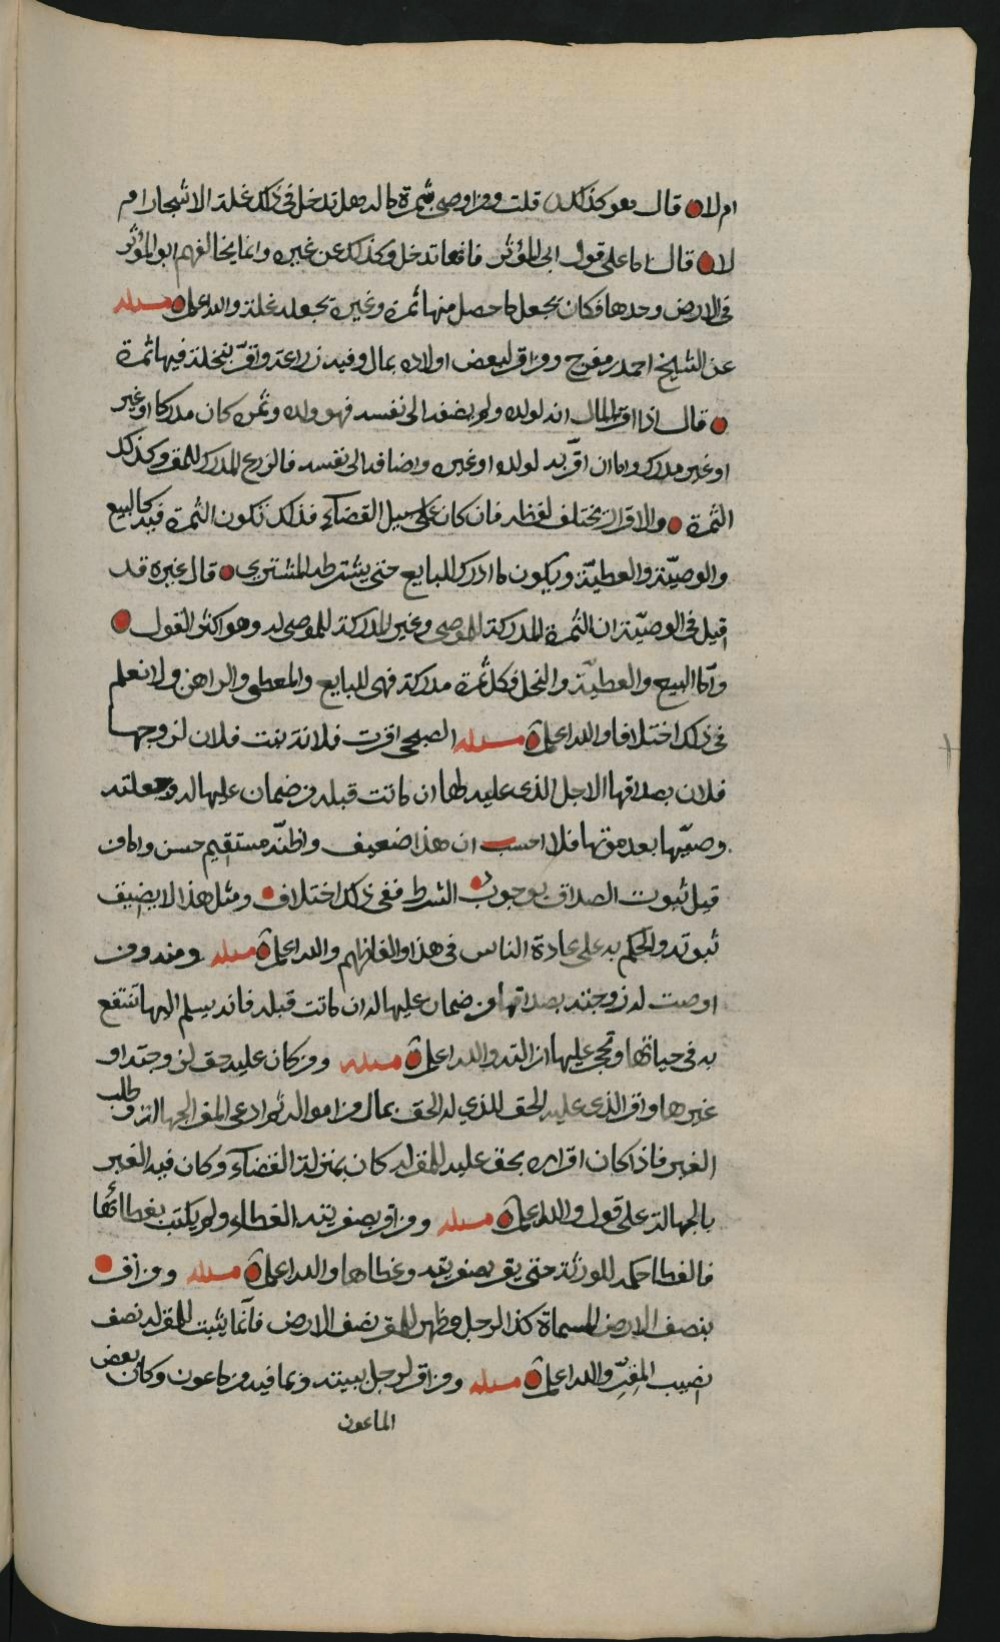 ام لا قال هو كذلك قلت ومن اوصى بثمرة ماله هل تدخل في ذلك غلة الاشجار ام
لا قال اما على قول ابي المؤثر فانها تدخل وكذلك عن غيره وانما يخالفهم ابو المؤثر
في الارض وحدها فكان يجعل ما حصل منها ثمرة وغيره يجعله غلة والله اعلم مسئلة
عن الشيخ احمد بن مفرج ومن اقر لبعض اولاده بمال وفيه زراعة واقر بنخلة فيها ثمرة
قال اذا اقر بالمال انه لولده ولم يضفه الى نفسه فهو ولده وثمره كان مدركا او غير
او غير مدرك واما ان اقر به لولده او غيره واضافه الى نفسه فالزرع المدرك للمقر وكذلك
الثمرة والاقرار يختلف لفظه فان كان على سبيل القضاء فذلك تكون الثمرة فيه كالبيع
والوصية والعطية ويكون ما ادرك للبايع حتى يشترطه المشتري قال غيره قد
قيل في الوصية ان الثمرة المدركة للموصي وغير المدركة للموصى له وهو اكثر القول
واما البيع والعطية والنحل فكل ثمرة مدركة فهي للبايع والمعطي والراهن ولا نعلم
في ذلك اختلافا والله اعلم مسئلة الصبحي اقرت فلانة بنت فلان لزوجها
فلان بصداقها الاجل الذي عليه لها ان ماتت قبله من ضمان عليها له وجعلته
وصيها بعد موتها فلا احسب ان هذا ضعيف واظنه مستقيم حسن واما من
قبل ثبوت الصداق بوجوب الشرط ففي ذلك اختلاف ومثل هذا لا يضيق
ثبوته والحكم به على عادة الناس في هذا والفاظهم والله اعلم مسئلة ومنه ومن
اوصت له زوجته بصداقها من ضمان عليها له ان ماتت قبله فانه يسلم اليها تنتفع
به في حياتها وتحجر عليها ازالته والله اعلم مسئلة ومن كان عليه حق لزوجته او
غيرها واقر الذي عليه الحق للذي له الحق بمال من امواله ثم ادعى المقر الجهالة وطلب
الغير فاذا كان اقراره بحق عليه للمقر له كان بمنزلة القضاء وكان فيه الغير
بالجهالة على قول والله اعلم مسئلة ومن اقر بصفريته الغطاء ولم يكتب بغطائها
فالغطا حكمه للورثة حتى يقر بصفريته وغطاها والله اعلم مسئلة ومن اقر
بنصف الارض المسماة كذا لرجل وظهر للمقر نصف الارض فانما يثبت للمقر له نصف
نصيب المقر والله اعلم مسئلة ومن اقر لرجل ببيته وبما فيه من ماعون وكان بعض
الماعون